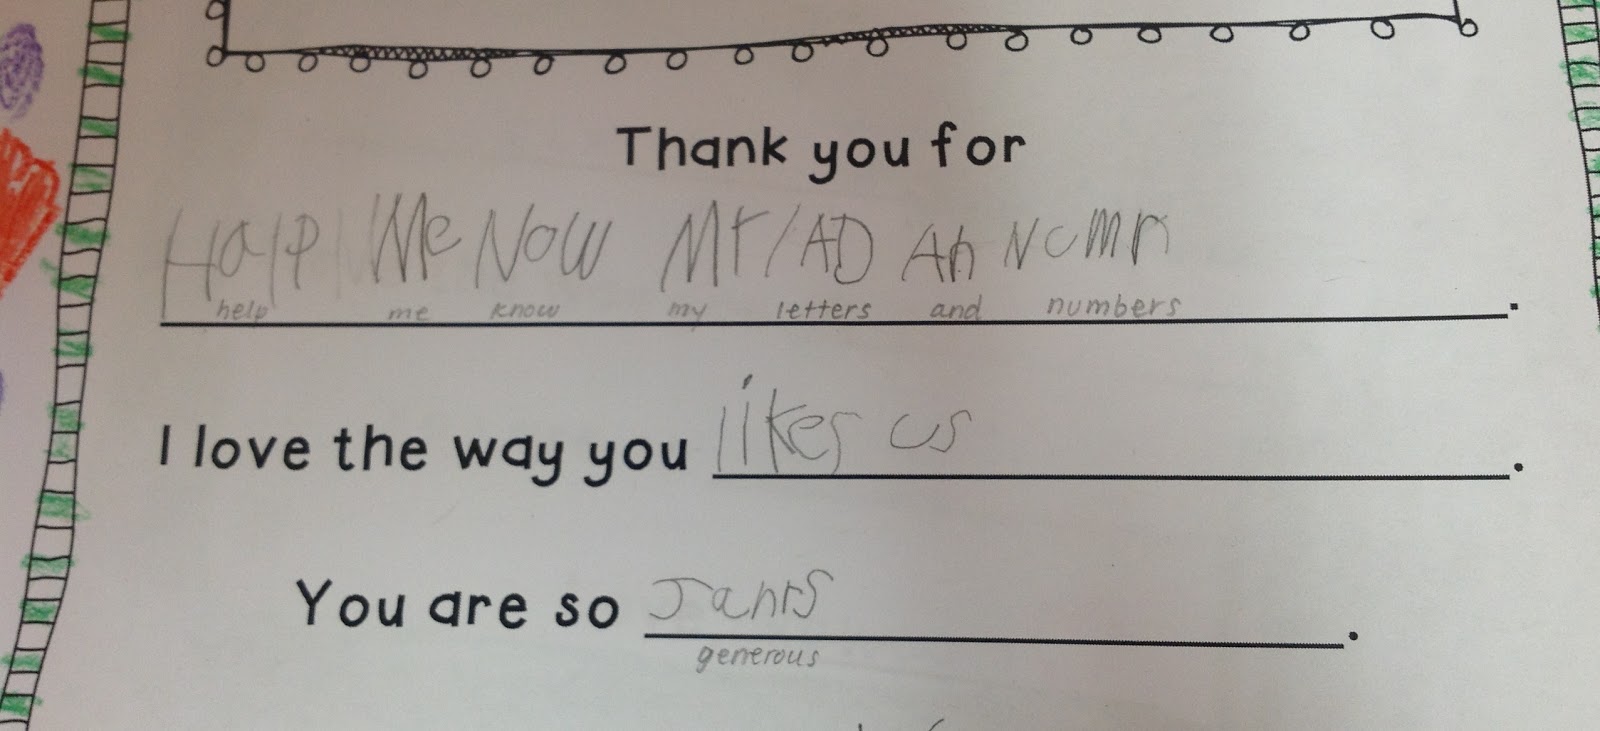 Thank you for
Halp Me Now Mr/AD An Ncmn
help me know my letters and numbers.
I love the way you likes us.
You are so Janrs.
generous